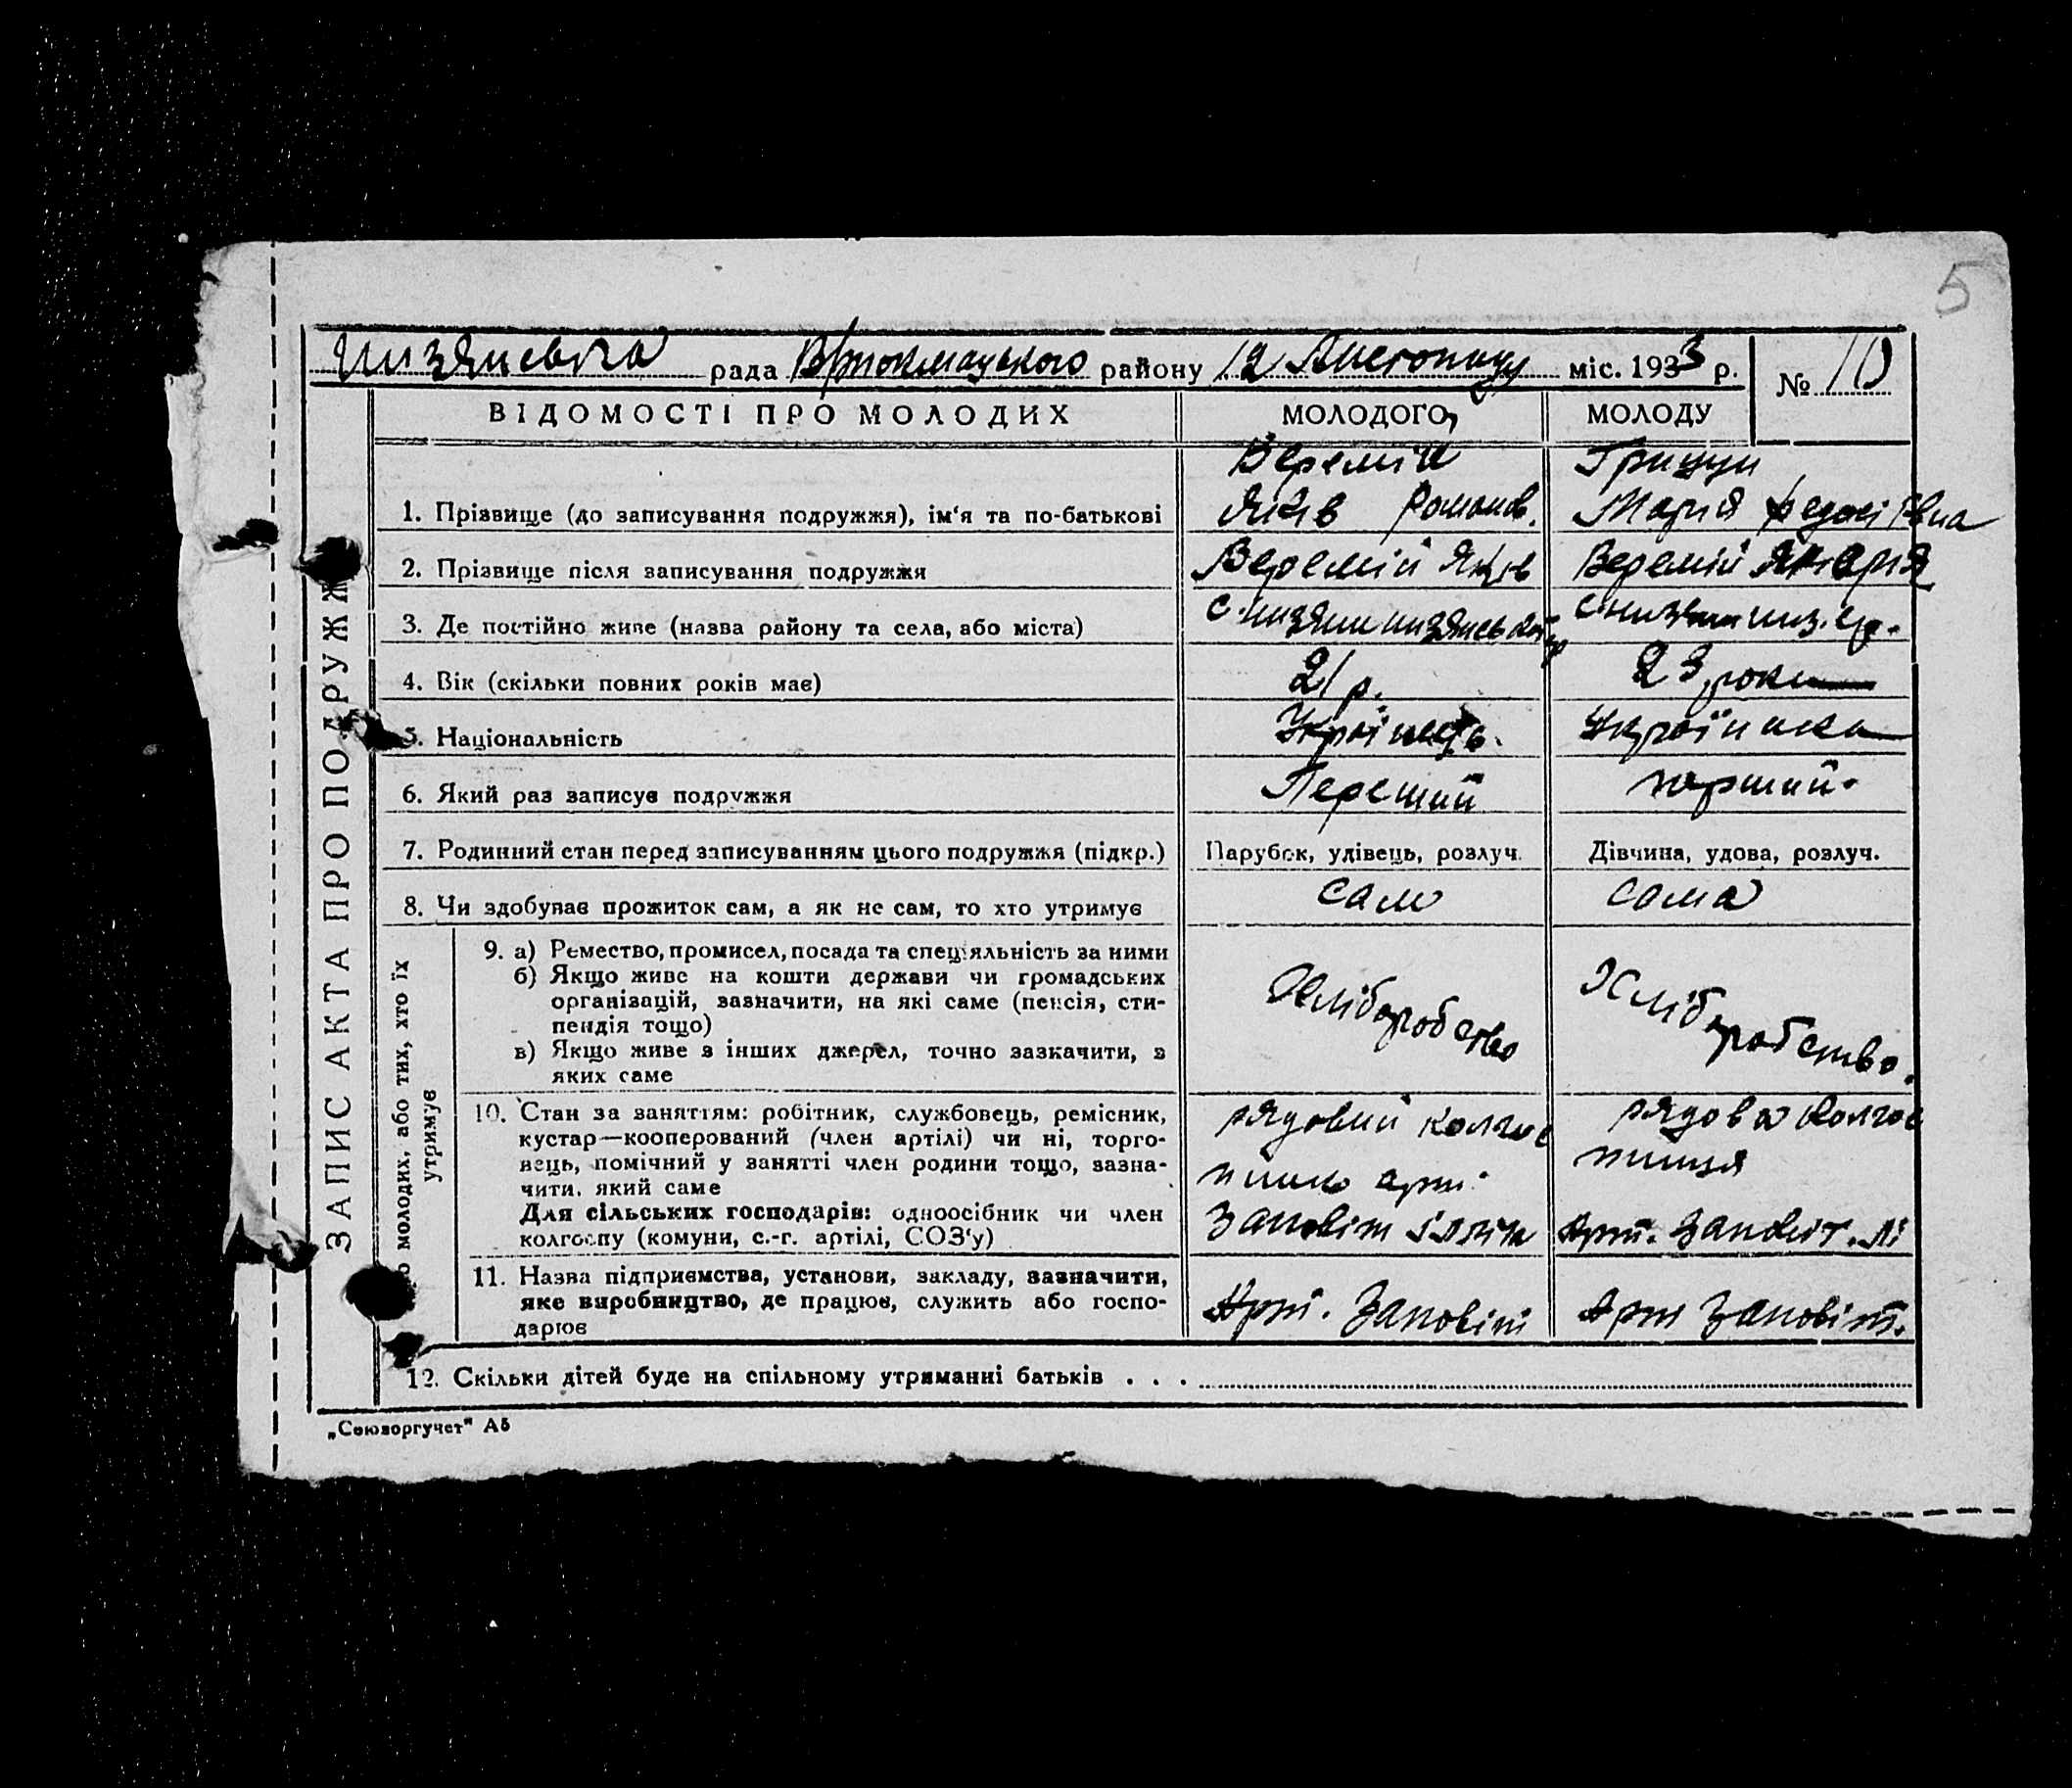 5
рада В/токмацького району 12 міс. 1933 р. № 10
ЗАПИС АКТА ПРО ПОДРУЖЖ
ВІДОМОСТІ ПРО МОЛОДИХ МОЛОДОГО, МОЛОДУ
Веремій Грицун
1. Прізвище (до записування подружжя), ім'я та по-батькові Яків Романов. Марія
2. Прізвище після записування подружжя Веремій Яків Веремій
3. Де постійно живе (назва району та села, або міста)
4. Вік (скільки повних років має) 21 р. 23 роки
5. Національність Українець. Українка
6. Який раз записує подружжя Перший перший.
7. Родинний стан перед записуванням цього подружжя (підкр.) Парубок, удівець, розлуч. Дівчина, удова, розлуч.
8. Чи здобуває прожиток сам, а як не сам, то хто утримує сам сама
о молодих, або тих, хто їх
утримує
9. а) Ремество, промисел, посада та спеціяльність за ними
б) Якщо живе на кошти держави чи громадських
організацій, зазначити, на які саме (пенсія, сти-
пендія тощо)
в) Якщо живе з інших джерел, точно зазначити, з
яких саме
Хліборобство Хліборобство.
10. Стан за заняттям: робітник, службовець, ремісник,
кустар—кооперований (член артілі) чи ні, торго-
вець, помічний у занятті член родини тощо, зазна-
чити, який саме
Для сільських господарів: одноосібник чи член
колгоспу (комуни, с.-г. артілі, СОЗ'у)
рядовий колгос рядова колгос
пник арт. пниця
Заповіт Ілліча Арт. Заповіт. Лі
11. Назва підприємства, установи, закладу, зазначити,
яке виробництво, де працює, служить або госпо-
дарює
Арт. Заповіт Арт Заповіт.
12. Скільки дітей буде на спільному утриманні батьків . . .
„Союзоргучет" А5